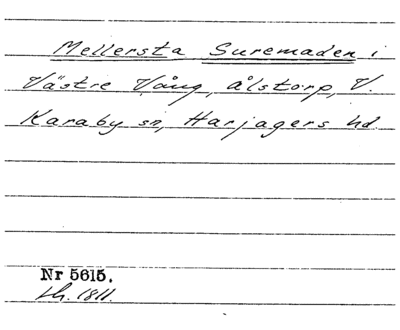 Mellersta Suremaden i
Västre Vång, Ålstorp, V.
Karaby sn, Harjagers hd
Nr 5615.
1811.